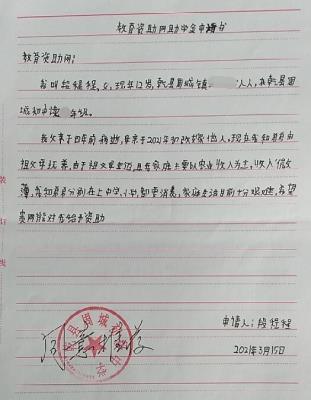 教育资助网助学金申请书
教育资助网:
我叫段程程,女,现年12岁,乾县周城镇 人,在乾县周
城初中读 年级。
我父亲于四年前 病逝,母亲于2021年初改嫁他人。现在我和
由祖父母抚养,由于祖父母 ,且我家庭主要以农业收入为主,收入微
薄,我和 分别在上中学、小学,都要消费,家庭生活目前十分艰难,希望
贵网能对我给予资助
申请人:段程程
2021年3月15日
同意推荐